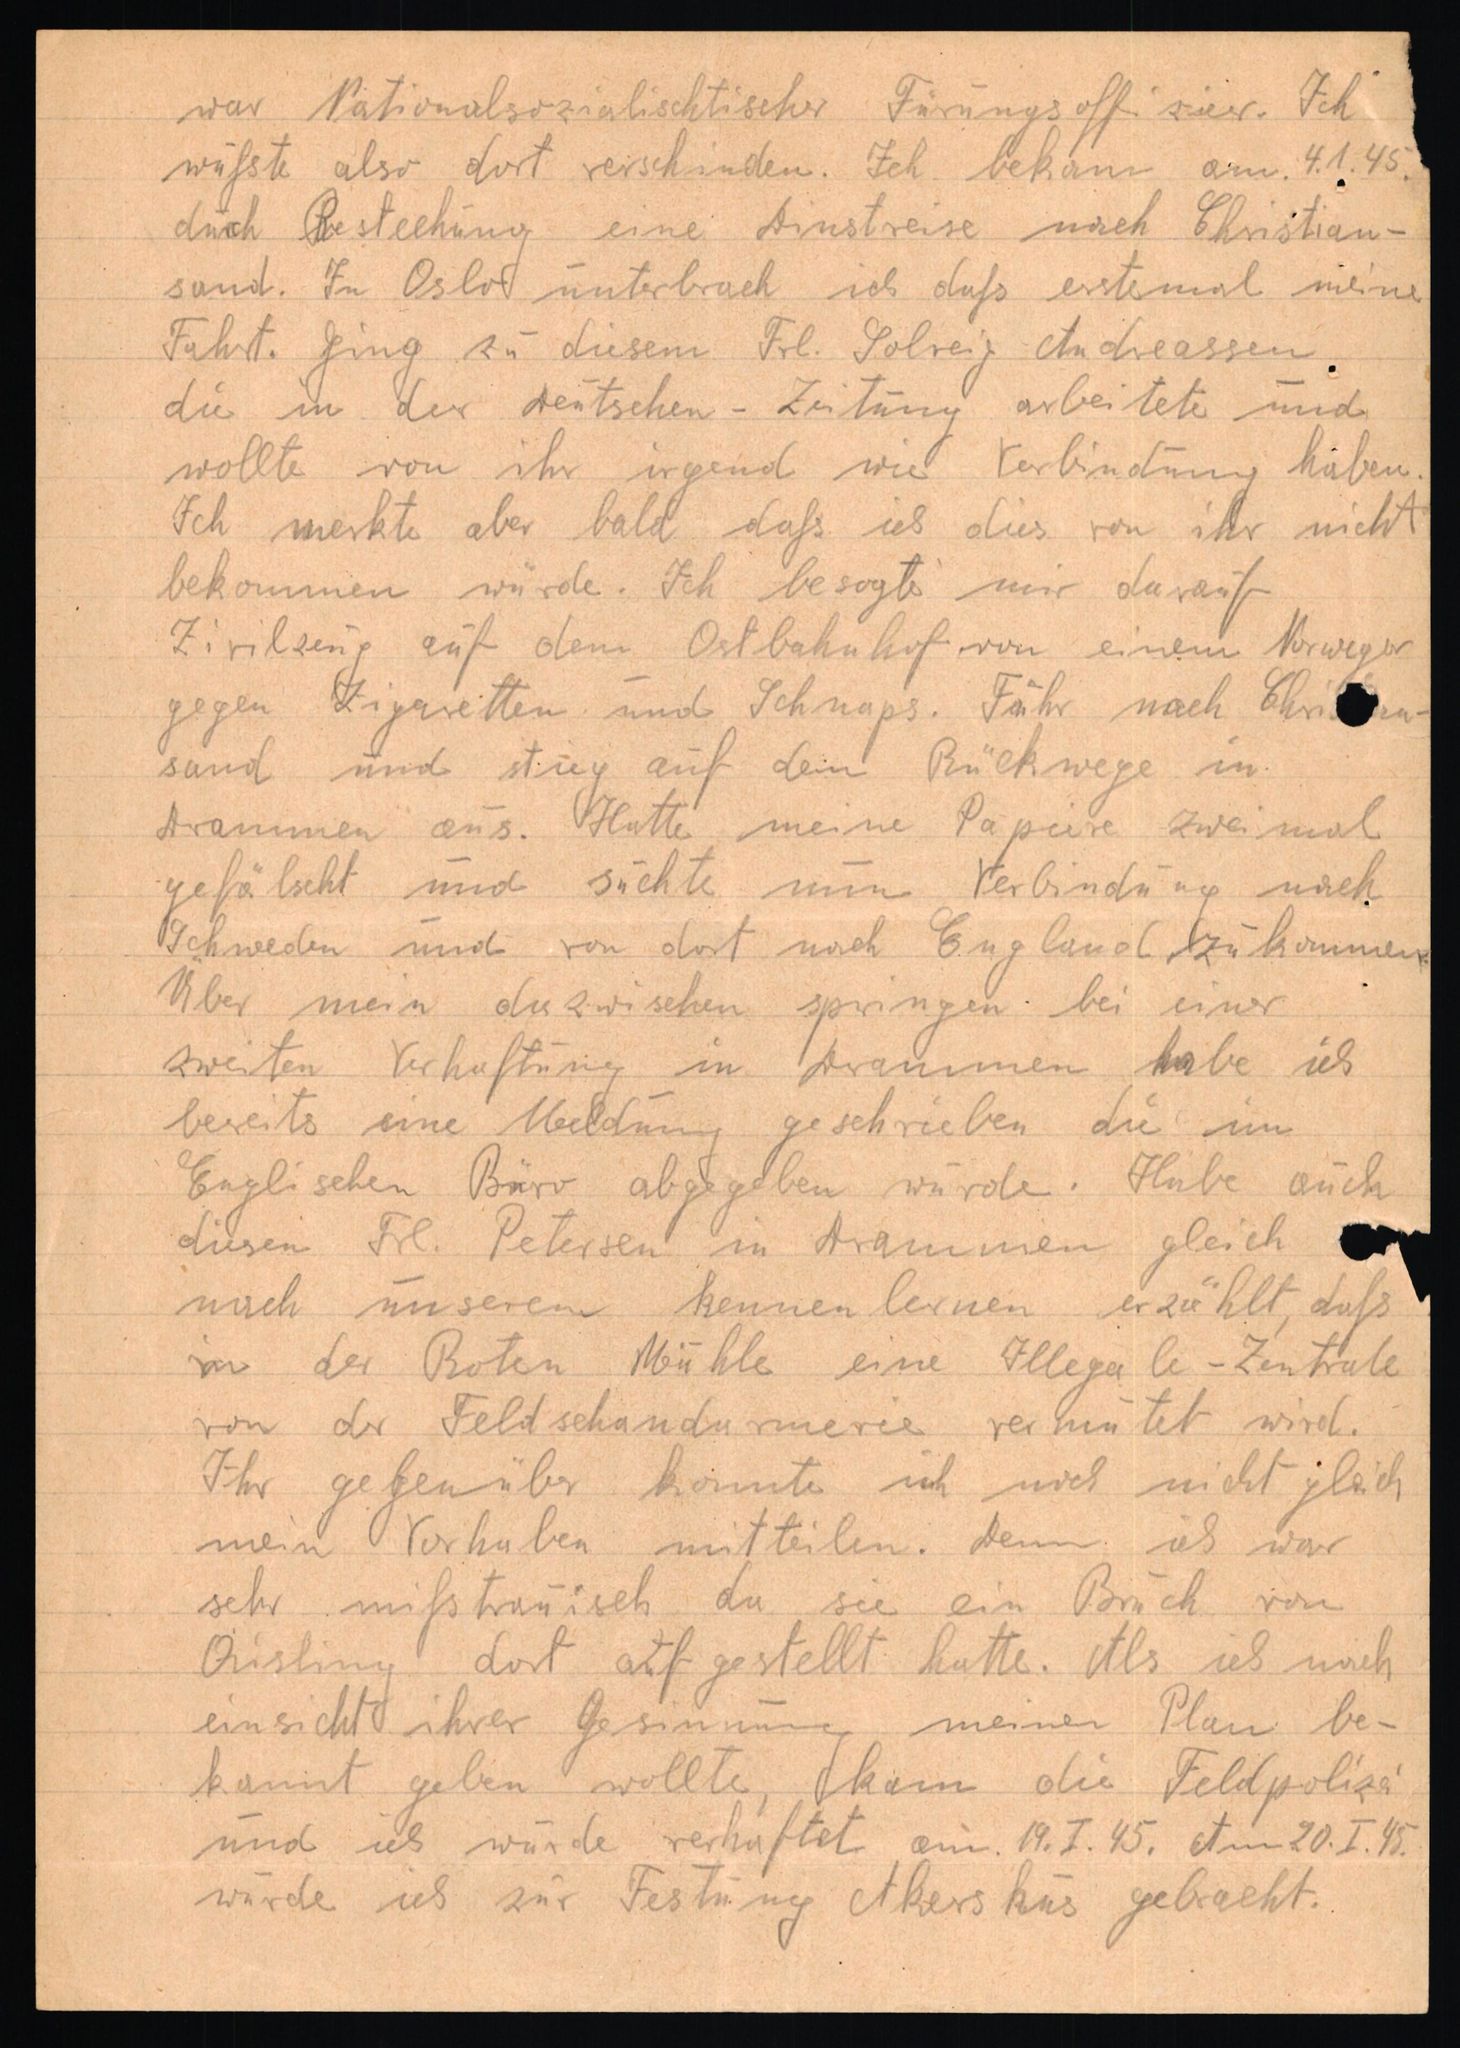 war Nationalsozialischtischer Fürungsoffizier. Ich
mußste also dort verschinden. Ich bekam am. 4.1.45.
durch Bestechung eine Dinstreise nach Christian-
sand. In Oslo unterbrach ich daß erstemal meine
Fahrt. Ging zu diesem Frl. Solveig Andreassen
die in der Deutschen-Zeitung arbeitete und
wollte von ihr irgend wie Verbindung haben.
Ich merkte aber bald daß ich dies von ihr nicht
bekommen würde. Ich besogte mir darauf
Zivilzeug auf dem Ostbahnhof von einem Norweger
gegen Zigaretten und Schnaps. Fuhr nach Chris an-
sand und stieg auf dem Rückwege in
Drammen aus. Hatte meine Papiere zweimal
gefälscht und suchte nun Verbindung nach
Schweden und von dort nach England zukommen.
Über mein dazwischen springen bei einer
zweiten Verhaftung in Drammen habe ich
bereits eine Meldung geschrieben die im
Englischen Büro abgegeben wurde. Habe auch
diesen Frl. Petersen in Drammen gleich
nach unserem kennenlernen erzählt, daß
in der Roten Mühle eine Illegale-Zentrale
von der Feldschandarmerie vermutet wird.
Ihr gegenüber konnte ich noch nicht gleich
mein Vorhaben mitteilen. Denn ich war
sehr mißtrauisch da sie ein Bruch von
Quisling dort aufgestellt hatte. Als ich nach
einsicht ihrer Gesinnung meinen Plan be-
kannt geben wollte, kam die Feldpolizei
und ich wurde verhaftet am. 19.I.45. Am 20.I.45.
wurde ich zur Festung Akerskus gebracht.